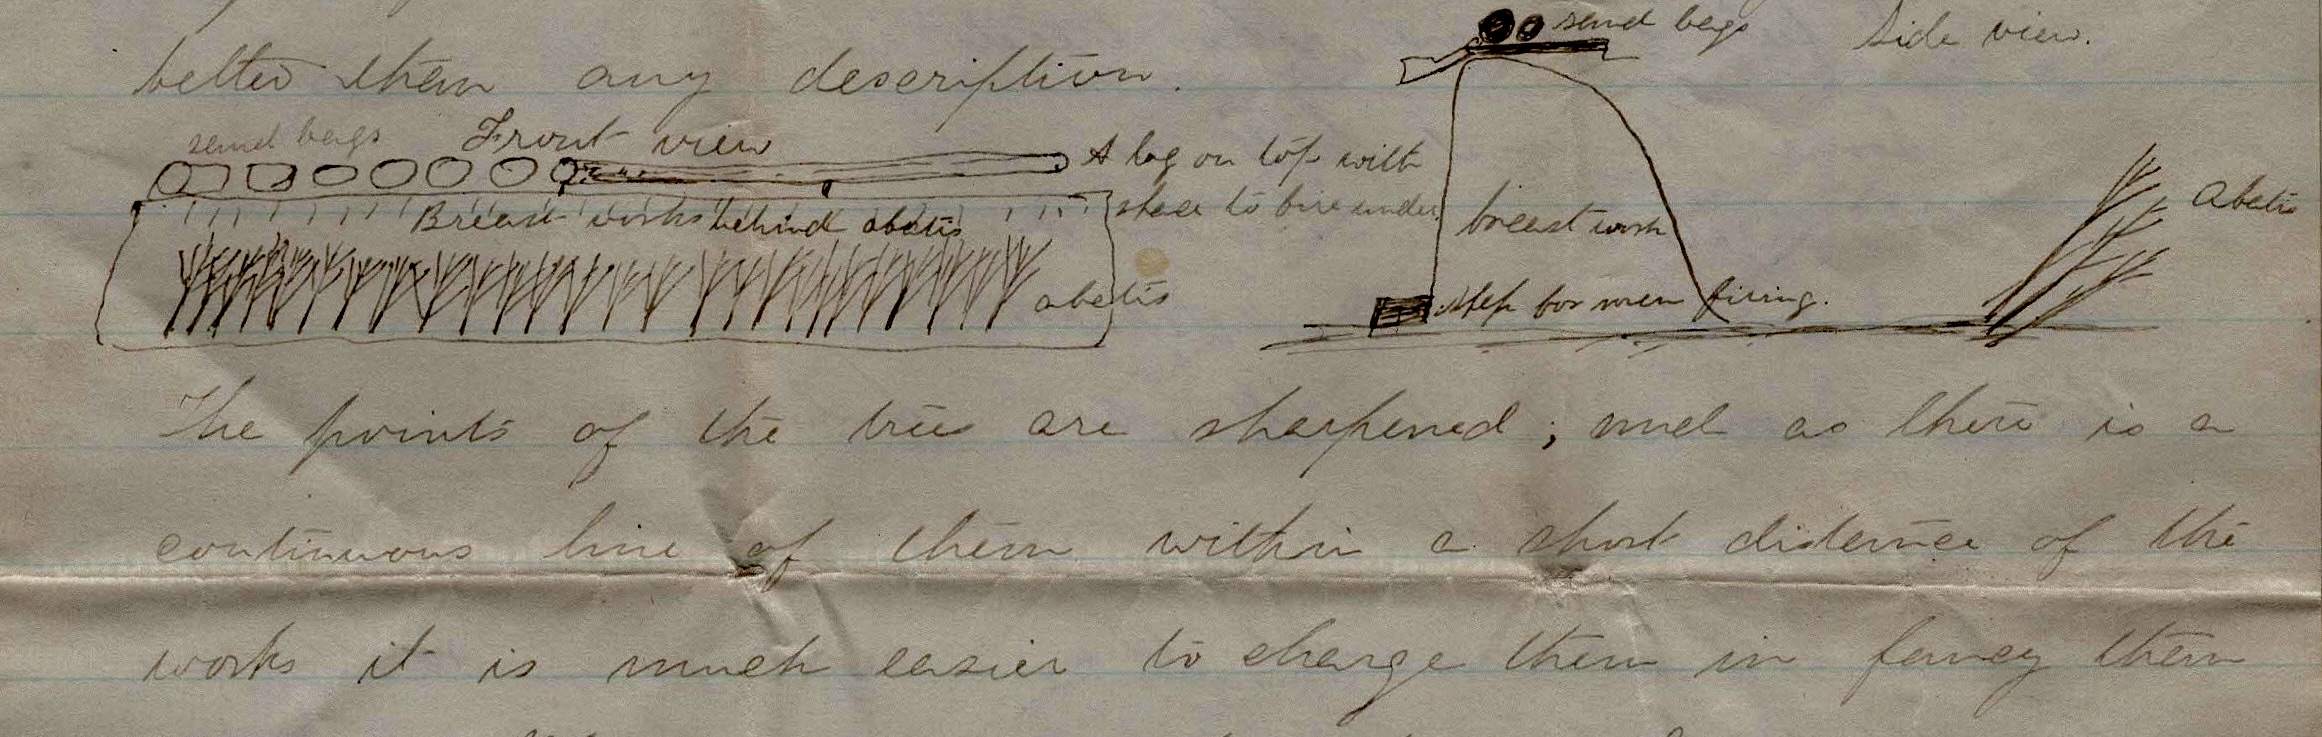 sand bags Side view.
better than any description.
sand bags Front view
A log on top with
space to fire under
Breast works behind abatis
abatis
breast work
Abatis
step for men firing.
The points of the tree are sharpened; and as there is a
continuous line of them within a short distance of the
works it is much easier to charge them in fancy than